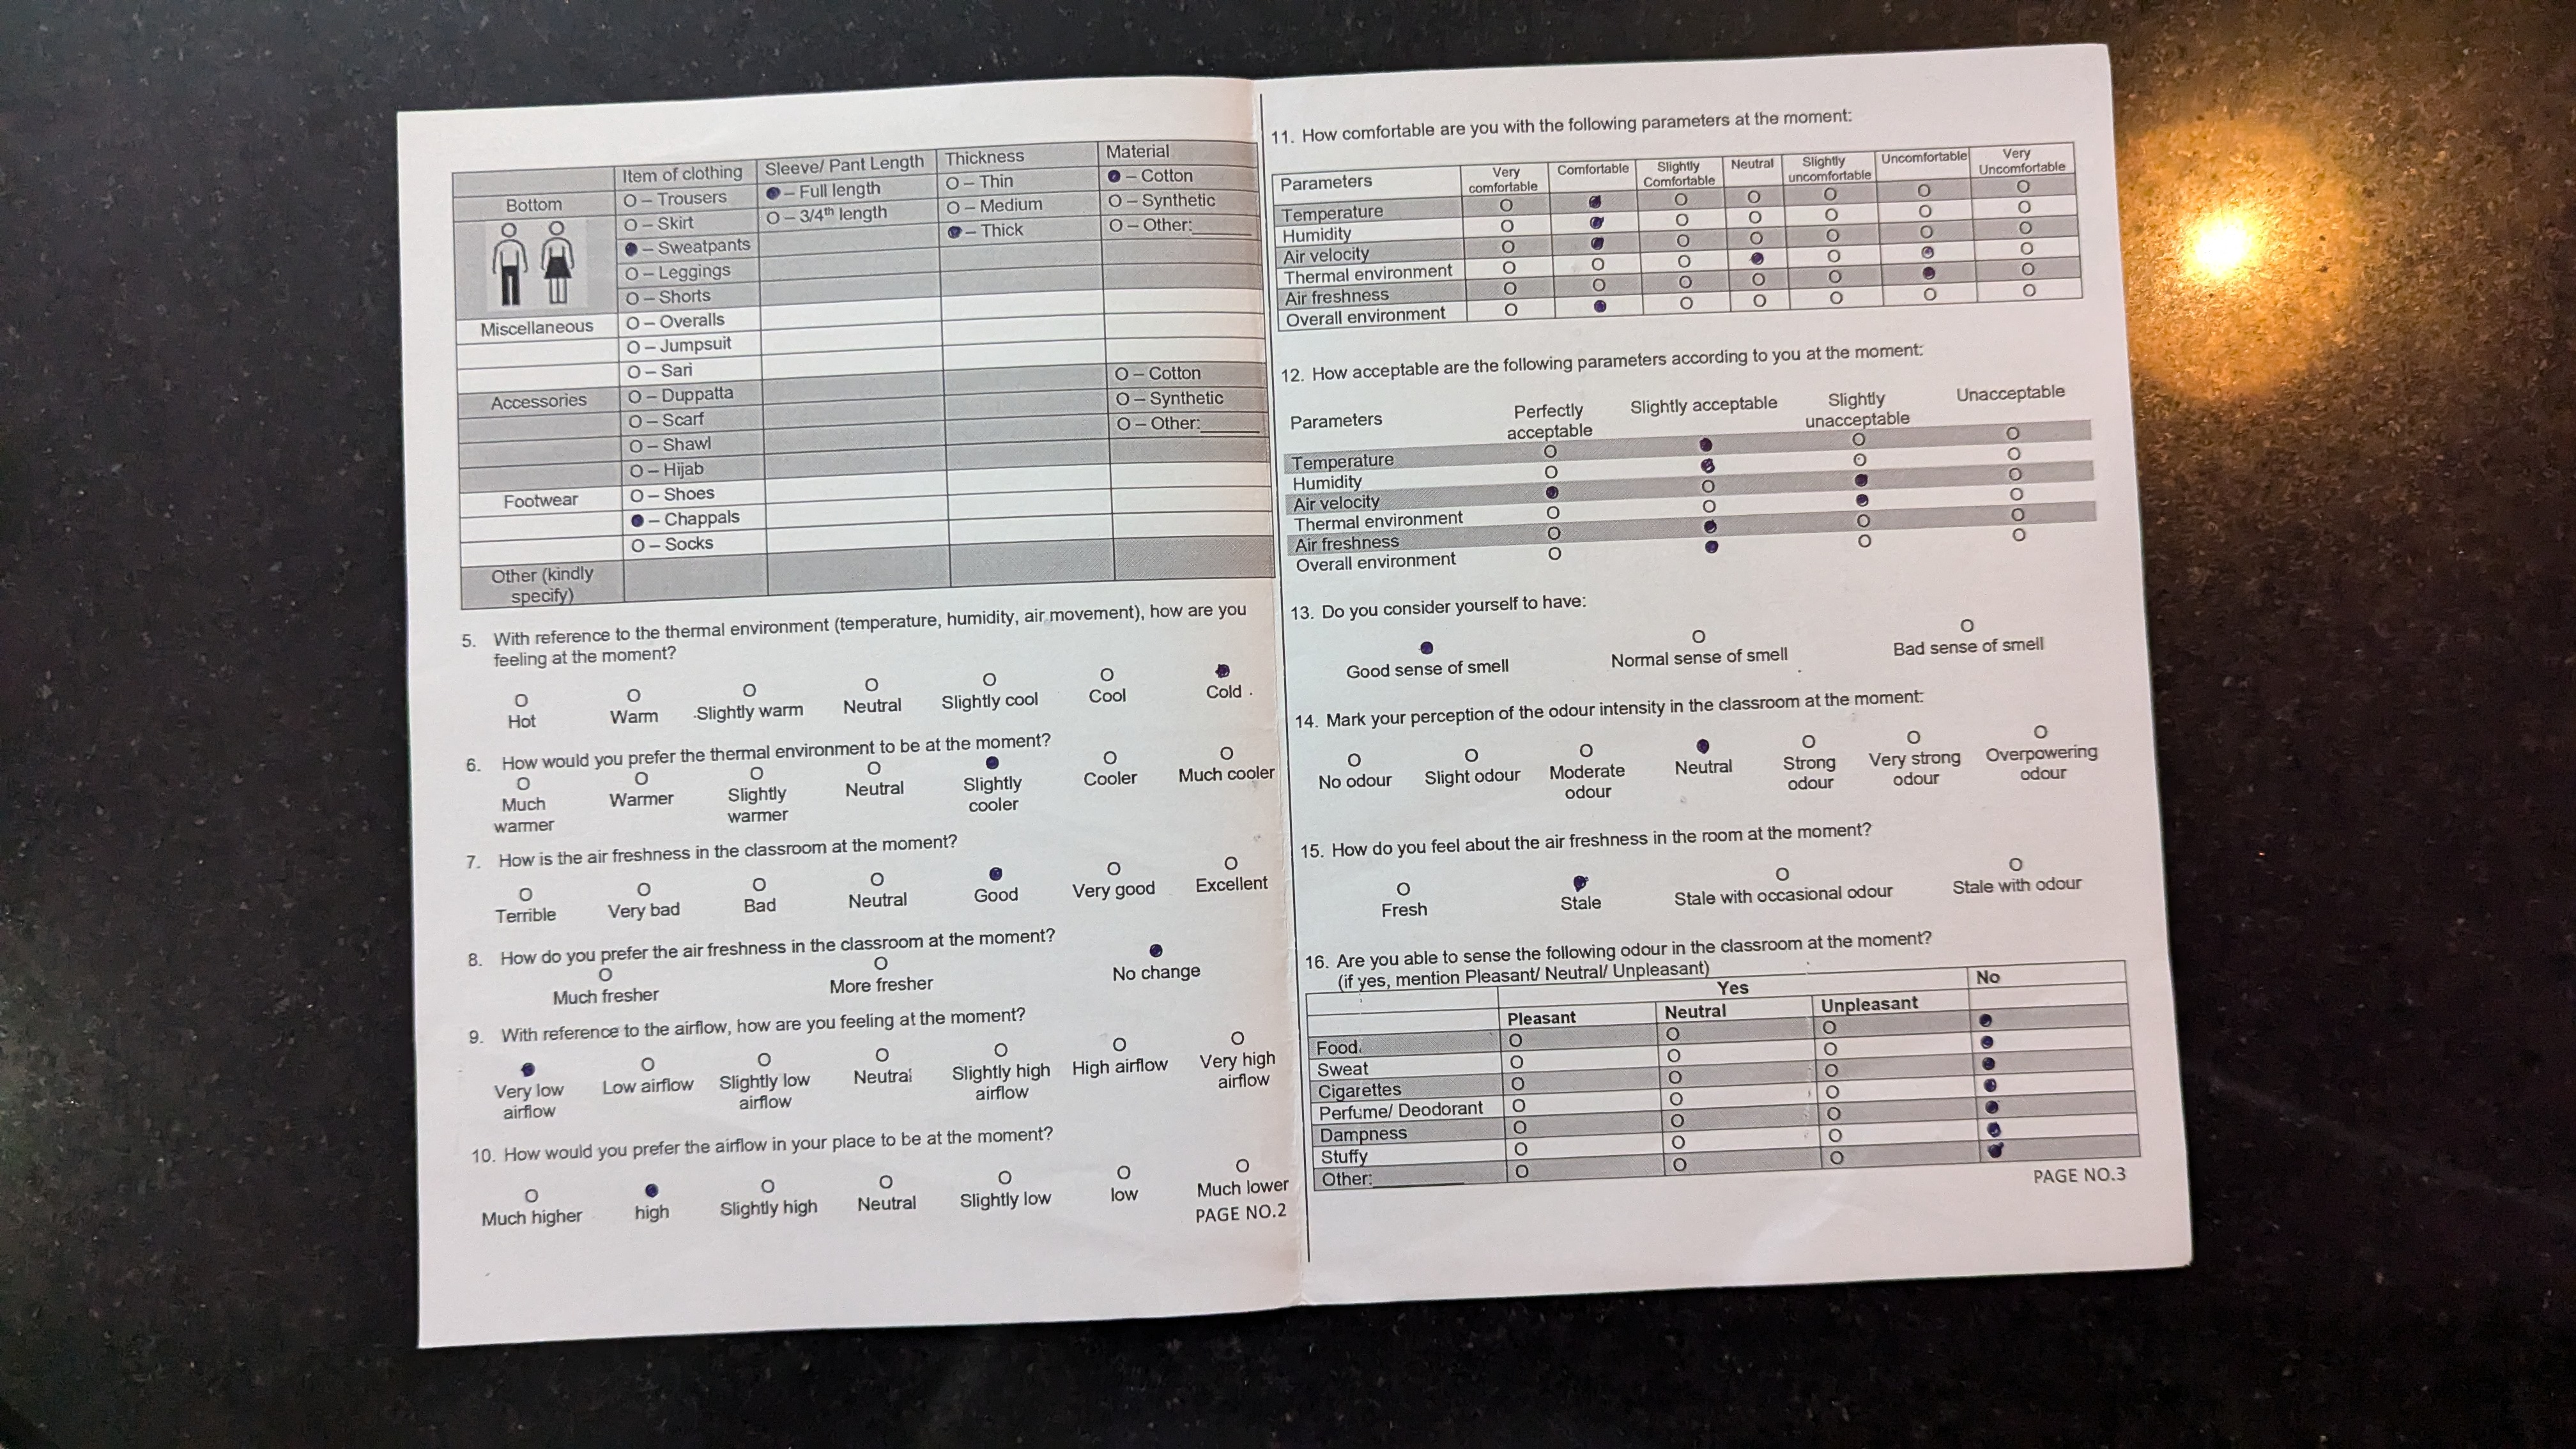 Item of clothing Sleeve/ Pant Length Thickness Material
Bottom O – Trousers ● – Full length O – Thin ● – Cotton
O – Skirt O – 3/4th length O – Medium O – Synthetic
● – Sweatpants ● – Thick O – Other:______
O – Leggings
O – Shorts
Miscellaneous O – Overalls
O – Jumpsuit
O – Sari
Accessories O – Duppatta O – Cotton
O – Scarf O – Synthetic
O – Shawl O – Other:______
O – Hijab
Footwear O – Shoes
● – Chappals
O – Socks
Other (kindly
specify)
5. With reference to the thermal environment (temperature, humidity, air movement), how are you
feeling at the moment?
O O O O O O ●
Hot Warm Slightly warm Neutral Slightly cool Cool Cold
6. How would you prefer the thermal environment to be at the moment?
O O O O ● O O
Much Warmer Slightly Neutral Slightly Cooler Much cooler
warmer warmer cooler
7. How is the air freshness in the classroom at the moment?
O O O O ● O O
Terrible Very bad Bad Neutral Good Very good Excellent
8. How do you prefer the air freshness in the classroom at the moment?
O O ●
Much fresher More fresher No change
9. With reference to the airflow, how are you feeling at the moment?
● O O O O O O
Very low Low airflow Slightly low Neutral Slightly high High airflow Very high
airflow airflow airflow airflow
10. How would you prefer the airflow in your place to be at the moment?
O ● O O O O O
Much higher high Slightly high Neutral Slightly low low Much lower
PAGE NO.2
11. How comfortable are you with the following parameters at the moment:
Parameters Very Comfortable Slightly Neutral Slightly Uncomfortable Very
comfortable Comfortable uncomfortable Uncomfortable
Temperature O ● O O O O O
Humidity O ● O O O O O
Air velocity O ● O O O O O
Thermal environment O O O ● O ● O
Air freshness O O O O O ● O
Overall environment O ● O O O O O
12. How acceptable are the following parameters according to you at the moment:
Parameters Perfectly Slightly acceptable Slightly Unacceptable
acceptable unacceptable
Temperature O ● O O
Humidity O ● O O
Air velocity ● O ● O
Thermal environment O O ● O
Air freshness O ● O O
Overall environment O ● O O
13. Do you consider yourself to have:
● O O
Good sense of smell Normal sense of smell Bad sense of smell
14. Mark your perception of the odour intensity in the classroom at the moment:
O O O ● O O O
No odour Slight odour Moderate Neutral Strong Very strong Overpowering
odour odour odour odour
15. How do you feel about the air freshness in the room at the moment?
O ● O O
Fresh Stale Stale with occasional odour Stale with odour
16. Are you able to sense the following odour in the classroom at the moment?
(if yes, mention Pleasant/ Neutral/ Unpleasant)
Yes No
Pleasant Neutral Unpleasant
Food O O O ●
Sweat O O O ●
Cigarettes O O O ●
Perfume/ Deodorant O O O ●
Dampness O O O ●
Stuffy O O O ●
Other:__________ O O O ●
PAGE NO.3